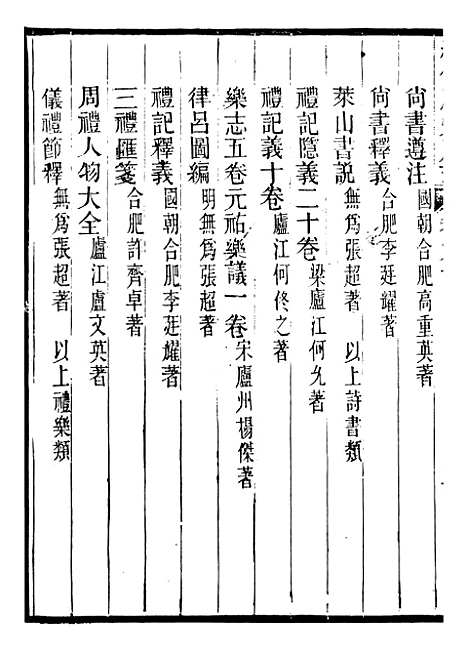 尙書遵注國朝合肥高重英著
尙書釋義合肥李廷耀著
萊山書說無爲張超著　以上詩書類
禮記隱義二十卷梁廬江何允著
禮記義十卷廬江何佟之著
樂志五卷元祐樂議一卷宋廬州楊傑著
律呂圖編明無爲張超著
禮記釋義國朝合肥李廷耀著
三禮匯箋合肥許齊卓著
周禮人物大全廬江盧文英著
儀禮節釋無爲張超著　以上禮樂類